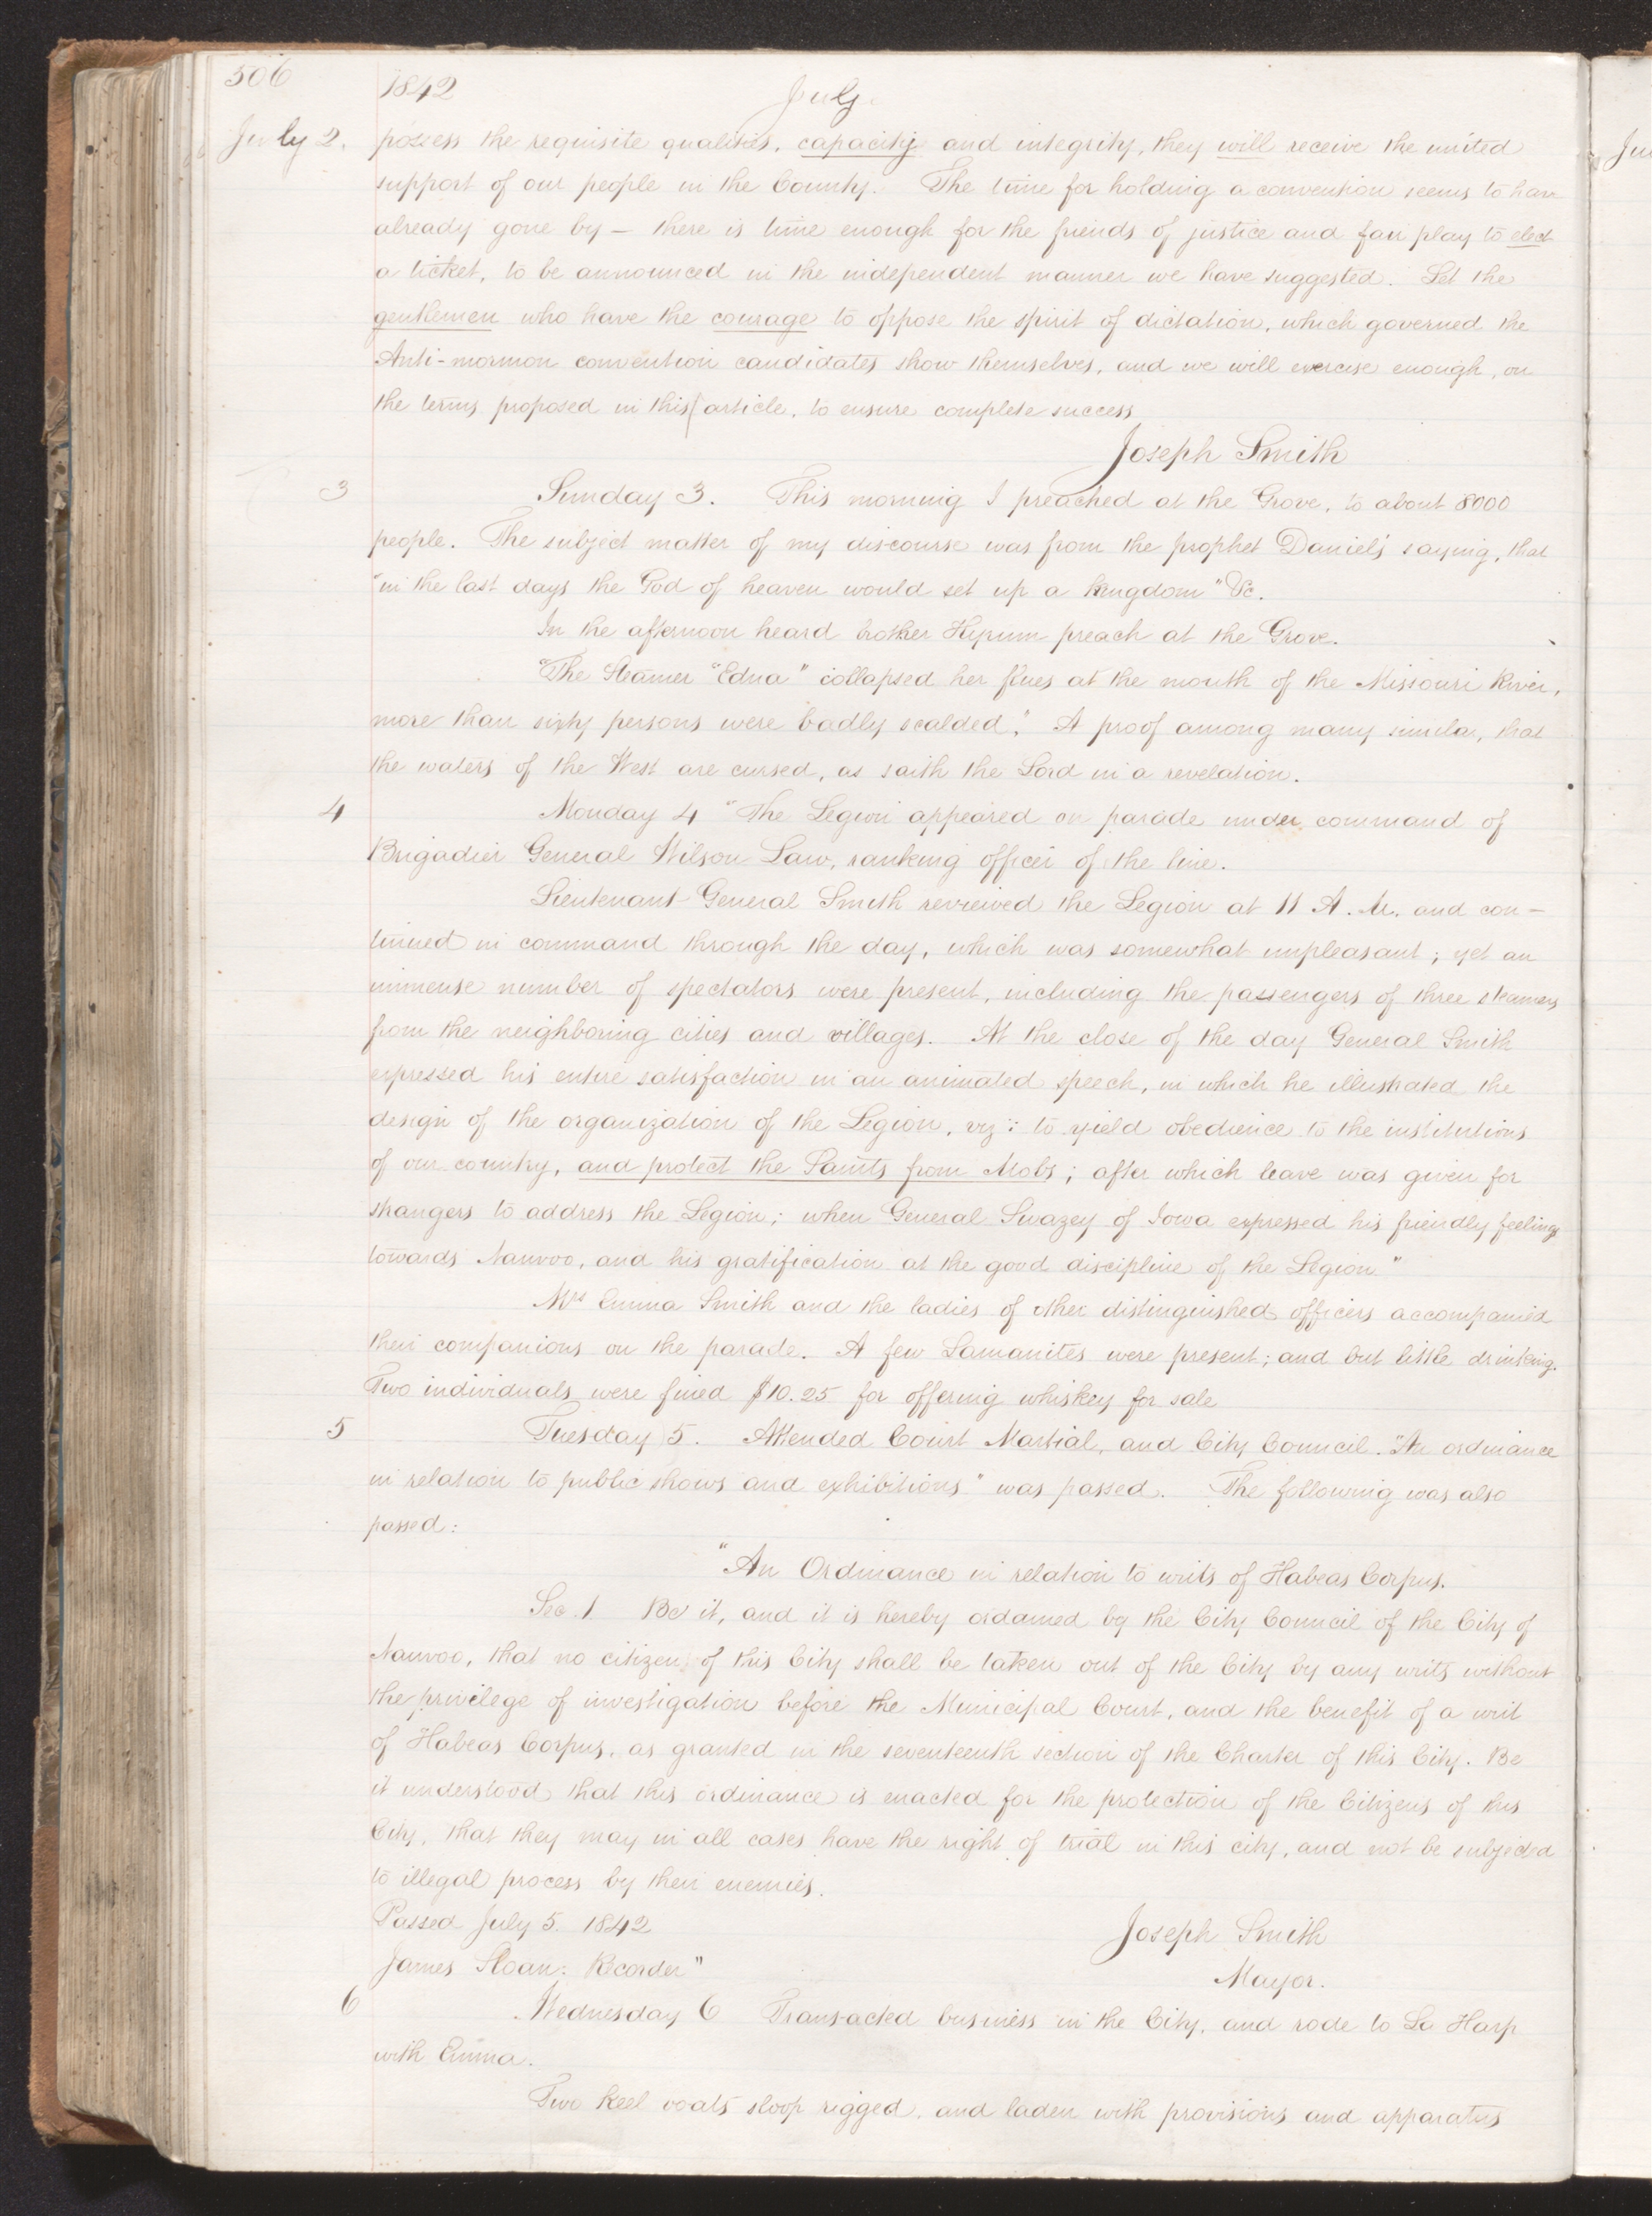 506
1842
July.
July 2. possess the requisite qualities, capacity and integrity, they will receive the united
support of our people in the County. The time for holding a convention seems to have
already gone by — there is time enough for the friends of justice and fair play to elect
a ticket, to be announced in the independent manner we have suggested. Let the
gentlemen who have the courage to oppose the spirit of dictation, which governed the
Anti-mormon convention candidates show themselves, and we will exercise enough, on
the terms proposed in this article, to ensure complete success
Joseph Smith
3 Sunday 3. This morning I preached at the Grove, to about 8000
people. The subject matter of my discourse was from the prophet Daniel's saying, that
"in the last days the God of heaven would set up a kingdom" &c.
In the afternoon heard brother Hyrum preach at the Grove.
"The Steamer "Edna" collapsed her flues at the mouth of the Missouri River,
more than sixty persons were badly scalded." A proof among many similar, that
the waters of the West are cursed, as saith the Lord in a revelation.
4 Monday 4 "The Legion appeared on parade under command of
Brigadier General Wilson Law, ranking officer of the line.
Lieutenant General Smith reviewed the Legion at 11 A. M. and con-
tinued in command through the day, which was somewhat unpleasant; yet an
immense number of spectators were present, including the passengers of three steamers
from the neighboring cities and villages. At the close of the day General Smith
expressed his entire satisfaction in an animated speech, in which he illustrated the
design of the organization of the Legion, viz: to yield obedience to the institutions
of our country, and protect the Saints from Mobs; after which leave was given for
strangers to address the Legion; when General Swazey of Iowa expressed his friendly feelings
towards Nauvoo, and his gratification at the good discipline of the Legion"
Mrs Emma Smith and the ladies of other distinguished officers accompanied
their companions on the parade. A few Lamanites were present; and but little drinking.
Two individuals were fined $10.25 for offering whiskey for sale
5 Tuesday 5. Attended Court Martial, and City Council. "An ordinance
in relation to public shows and exhibitions" was passed. The following was also
passed:
"An Ordinance in relation to writs of Habeas Corpus.
Sec. 1 Be it, and it is hereby ordained by the City Council of the City of
Nauvoo, that no citizen of this City shall be taken out of the City by any writs without
the privilege of investigation before the Municipal Court, and the benefit of a writ
of Habeas Corpus, as granted in the seventeenth section of the Charter of this City. Be
it understood that this ordinance is enacted for the protection of the Citizens of this
City, that they may in all cases have the right of trial in this city, and not be subjected
to illegal process by their enemies.
Passed July 5. 1842
Joseph Smith
James Sloan. Recorder"
Mayor.
6 Wednesday 6 Transacted business in the City, and rode to La Harp
with Emma.
Two keel boats sloop rigged, and laden with provisions and apparatus